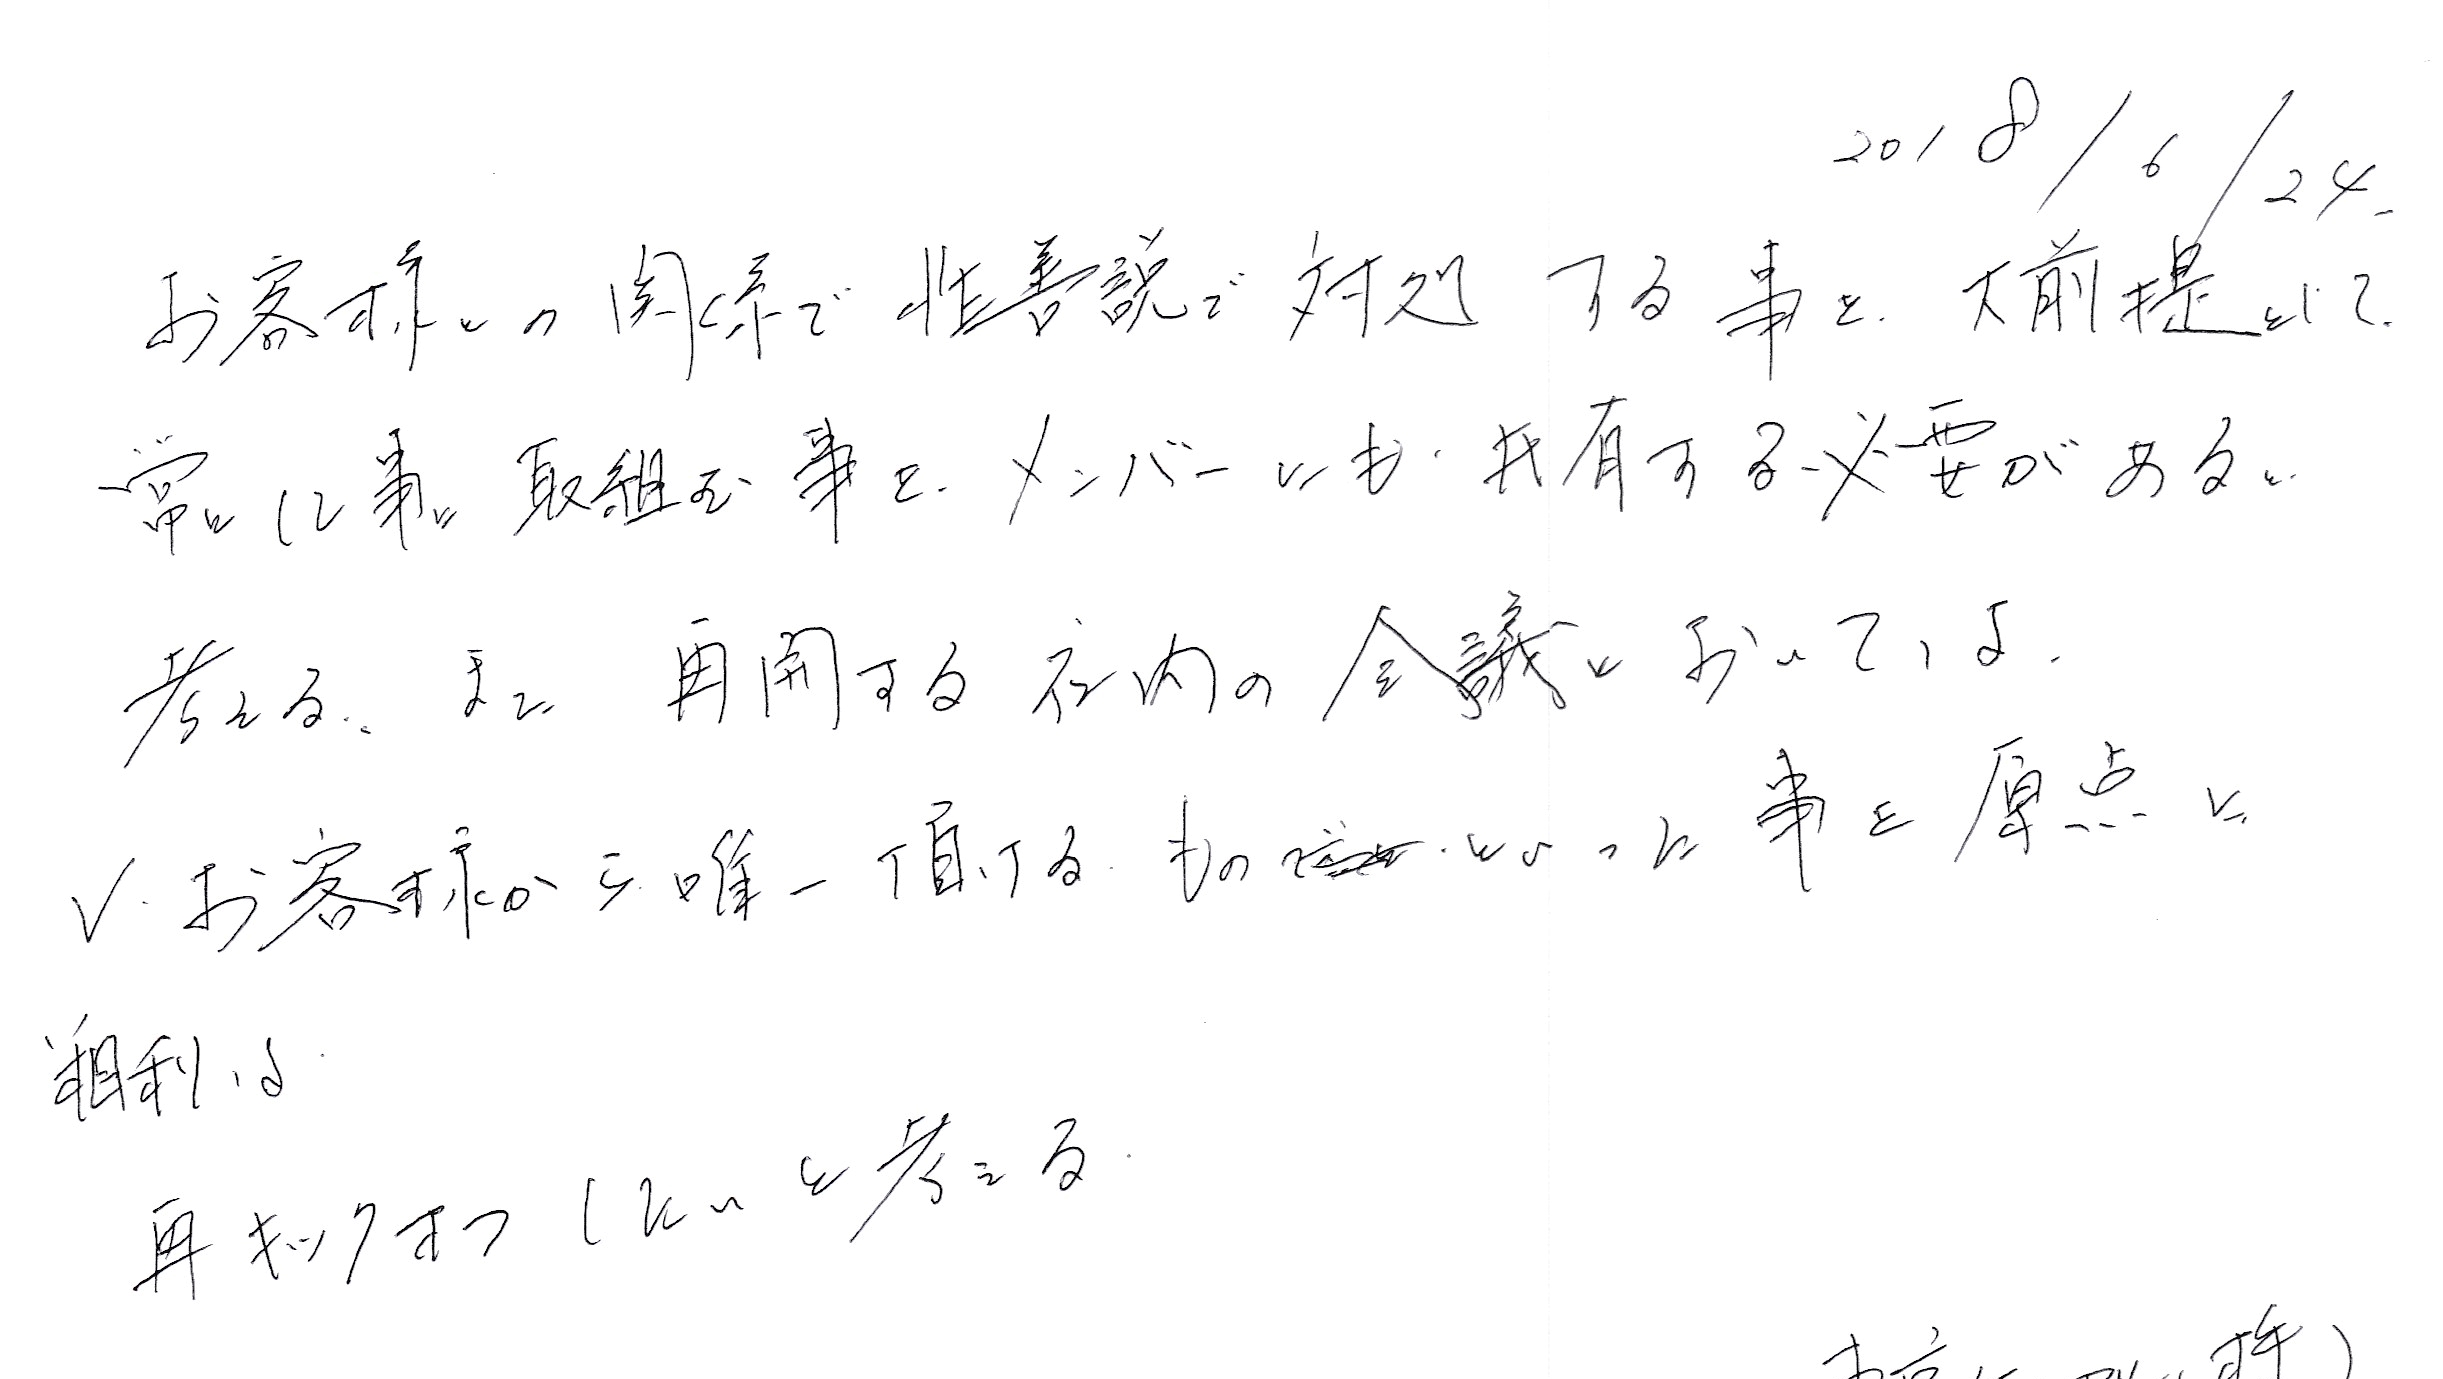 2018/6/24.
お客様との関係で性善説で対処する事を、大前提として、
常に事に取組む事を、メンバーにも、共有する必要があると
考える。また再開する社内の会議においては、
✓お客様から唯一頂けるものといった事を原点に
粗利は
再キックオフしたいと考える。